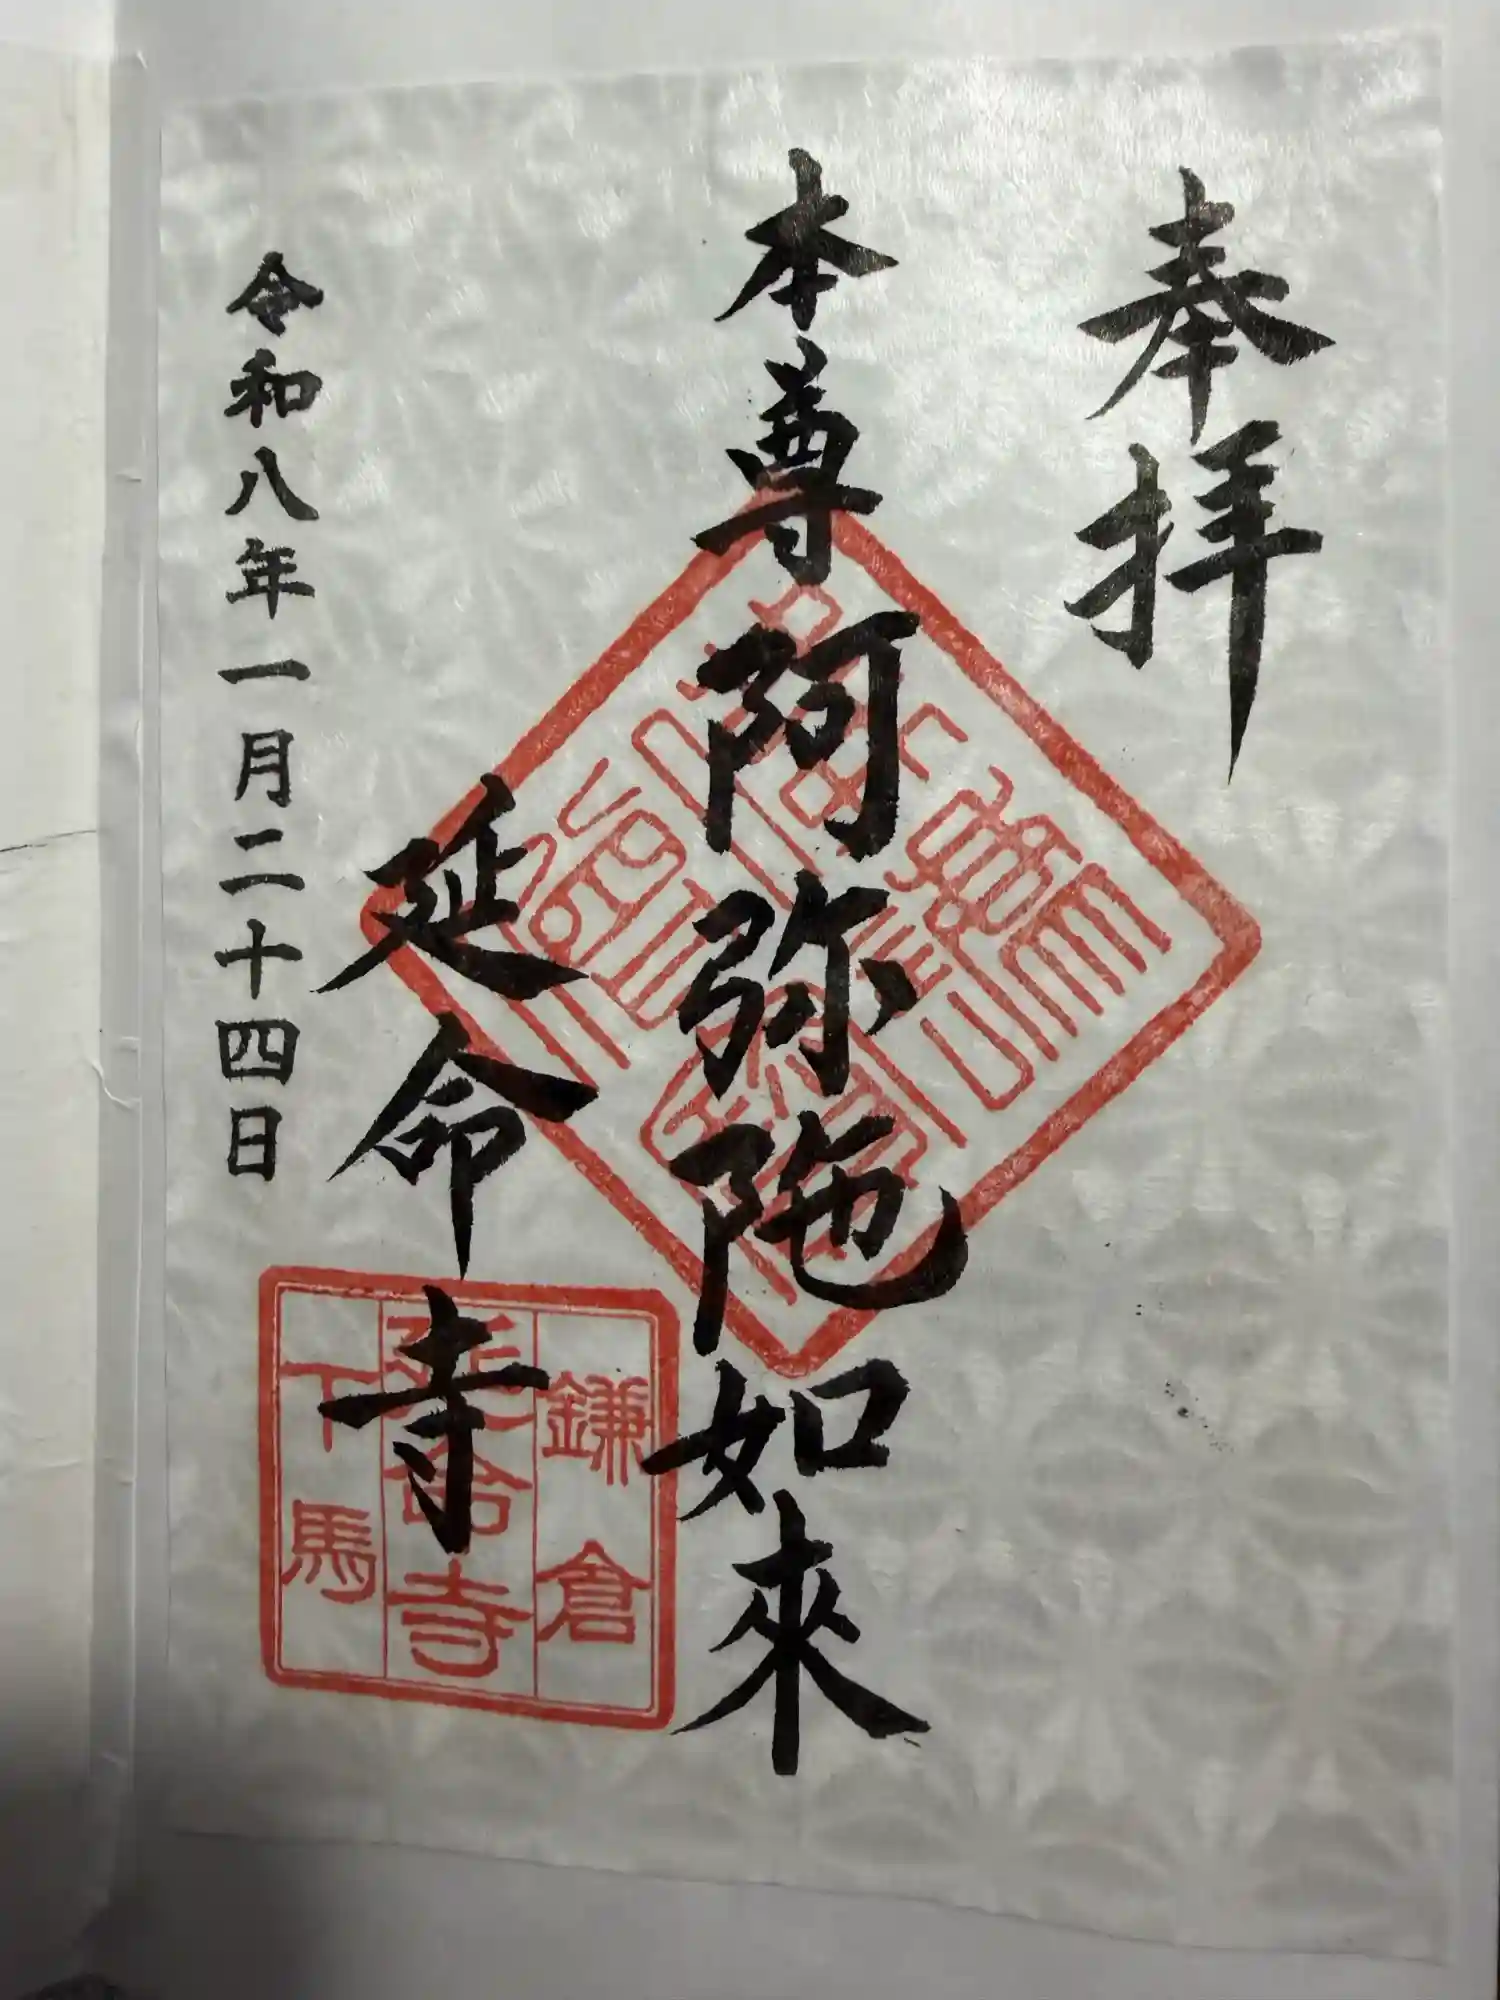 奉拝
本尊 阿弥陀如來
延命寺
令和八年一月二十四日
鎌倉
延命寺
下馬